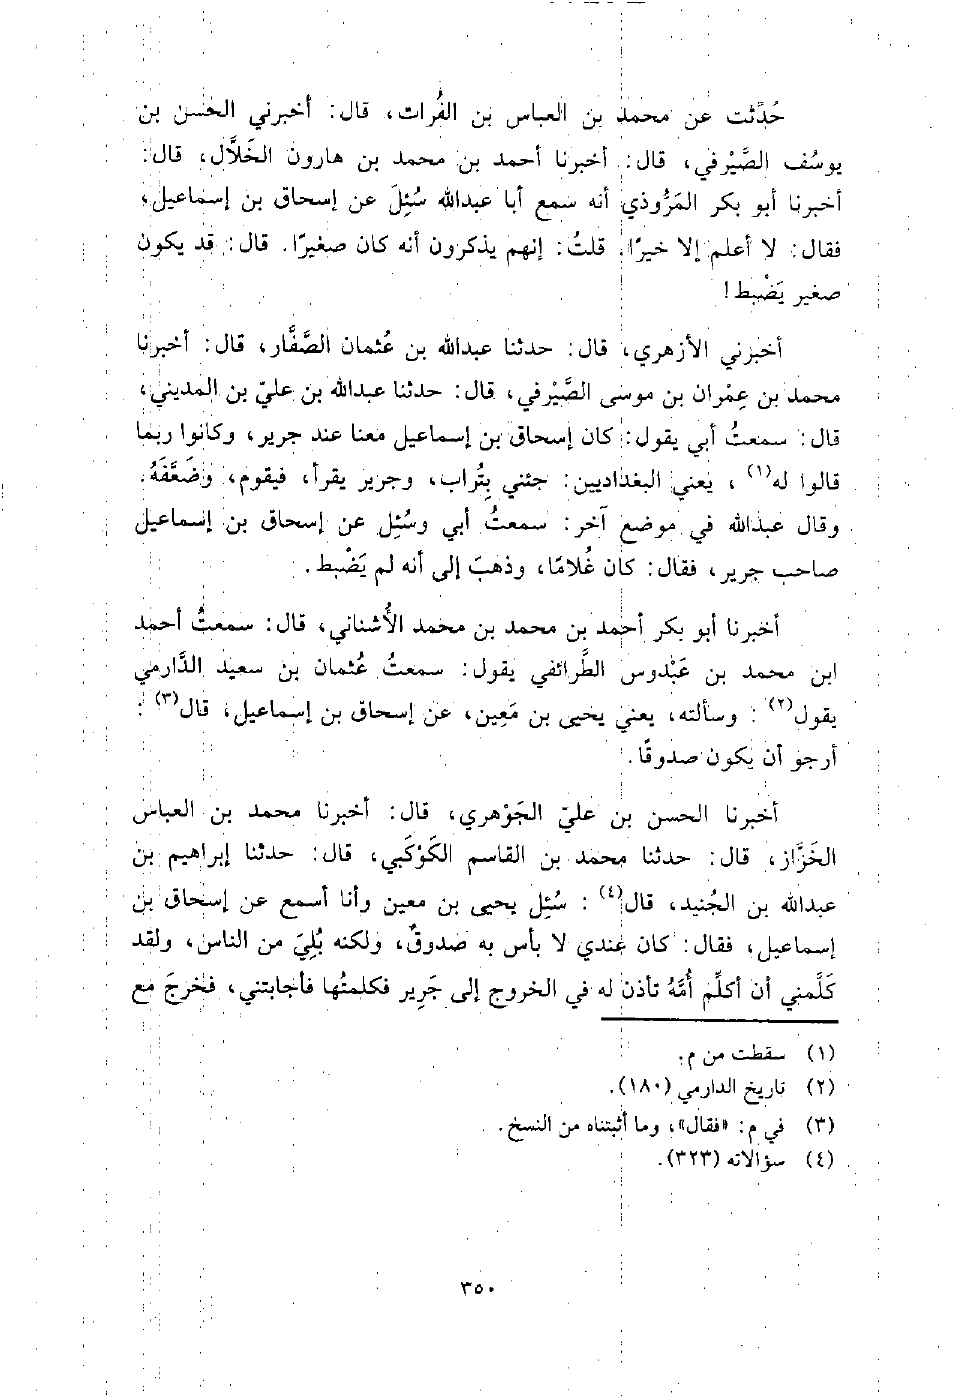 حُدِّثت عن محمد بن العباس بن الفُرات، قال: أخبرني الحسن بن
يوسُف الصَّيْرفي، قال: أخبرنا أحمد بن محمد بن هارون الخلَّال، قال:
أخبرنا أبو بكر المَرُّوذي أنه سمع أبا عبدالله سُئِلَ عن إسحاق بن إسماعيل،
فقال: لا أعلم إلا خيرًا. قلتُ: إنهم يذكرون أنه كان صغيرًا. قال: قد يكون
صغير يَضْبط!
أخبرني الأزهري، قال: حدثنا عبدالله بن عُثمان الصَّفَّار، قال: أخبرنا
محمد بن عِمْران بن موسى الصَّيْرفي، قال: حدثنا عبدالله بن عليّ بن المديني،
قال: سمعتُ أبي يقول: كان إسحاق بن إسماعيل معنا عند جرير، وكانوا ربما
قالوا له(١)، يعني البغداديين: جئني بِتُراب، وجرير يقرأ، فيقوم، وضَعَّفَهُ.
وقال عبدالله في موضع آخر: سمعتُ أبي وسُئِل عن إسحاق بن إسماعيل
صاحب جرير، فقال: كان غُلامًا، وذهبَ إلى أنه لم يَضْبط.
أخبرنا أبو بكر أحمد بن محمد بن محمد الأُشناني، قال: سمعتُ أحمد
ابن محمد بن عَبْدوس الطَّرائفي يقول: سمعتُ عُثمان بن سعيد الدَّارمي
يقول(٢): وسألته، يعني يحيى بن مَعِين، عن إسحاق بن إسماعيل، قال(٣):
أرجو أن يكون صدوقًا.
أخبرنا الحسن بن عليّ الجَوْهري، قال: أخبرنا محمد بن العباس
الخَزَّاز، قال: حدثنا محمد بن القاسم الكَوْكَبي، قال: حدثنا إبراهيم بن
عبدالله بن الجُنيد، قال(٤): سُئِل يحيى بن معين وأنا أسمع عن إسحاق بن
إسماعيل، فقال: كان عندي لا بأس به صدوقٌ، ولكنه بُلِيَ من الناس، ولقد
كَلَّمني أن أكلِّم أُمَّهُ تأذن له في الخروج إلى جَرِير فكلمتُها فأجابتني، فخرجَ مع
(١) سقطت من م.
(٢) تاريخ الدارمي (١٨٠).
(٣) في م: «فقال»، وما أثبتناه من النسخ.
(٤) سؤالاته (٣٢٣).
٣٥٠